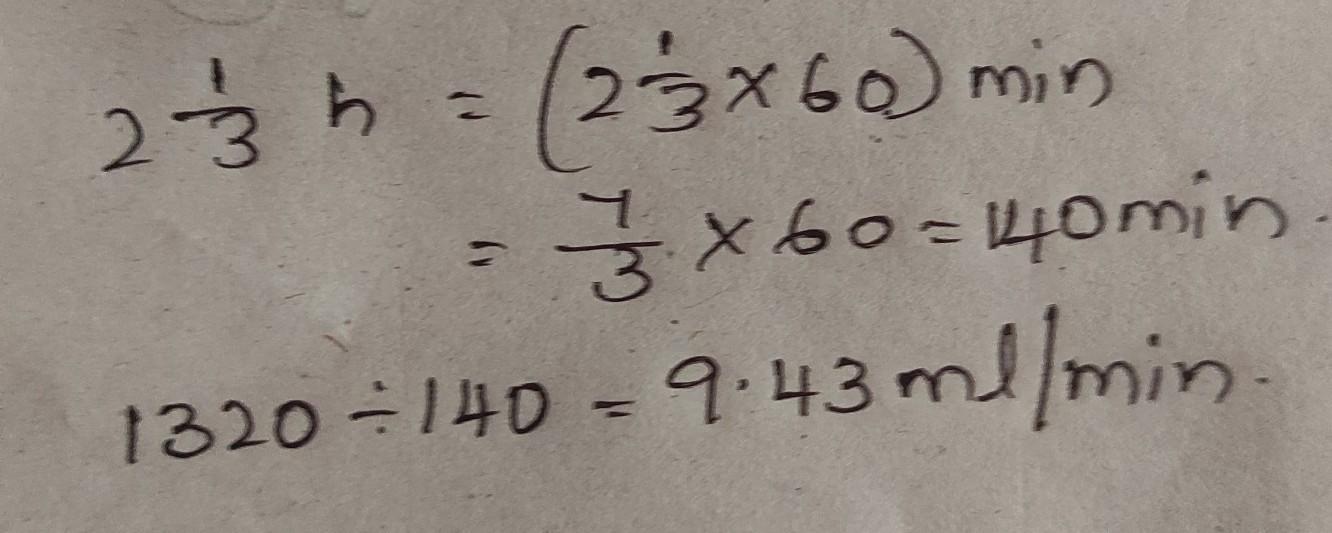 2 1/3 h = (2 1/3 × 60) min
= 7/3 × 60 = 140 min.
1320 ÷ 140 = 9.43 ml/min.